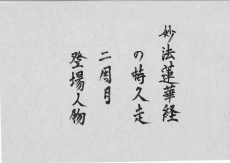 妙法蓮華経
の特久走
二周月
登場人物